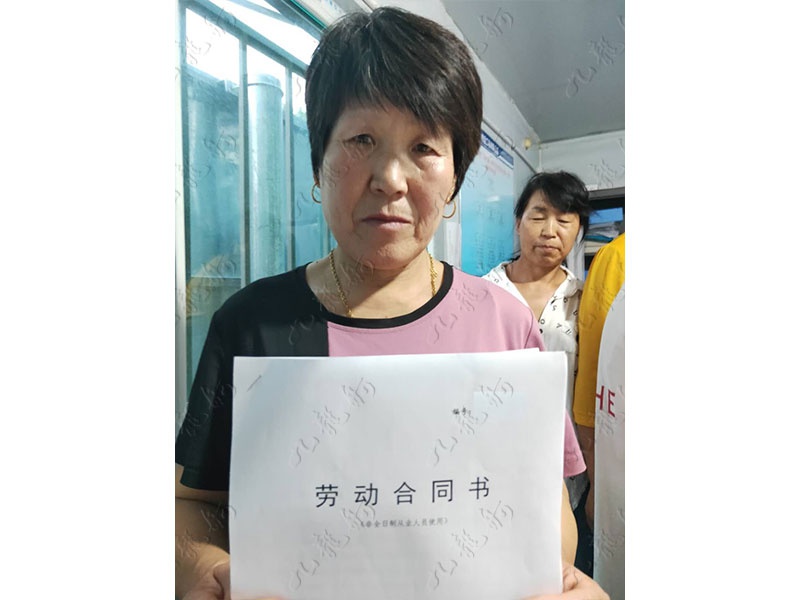 编号:
劳动合同书
(非全日制从业人员使用)
HE